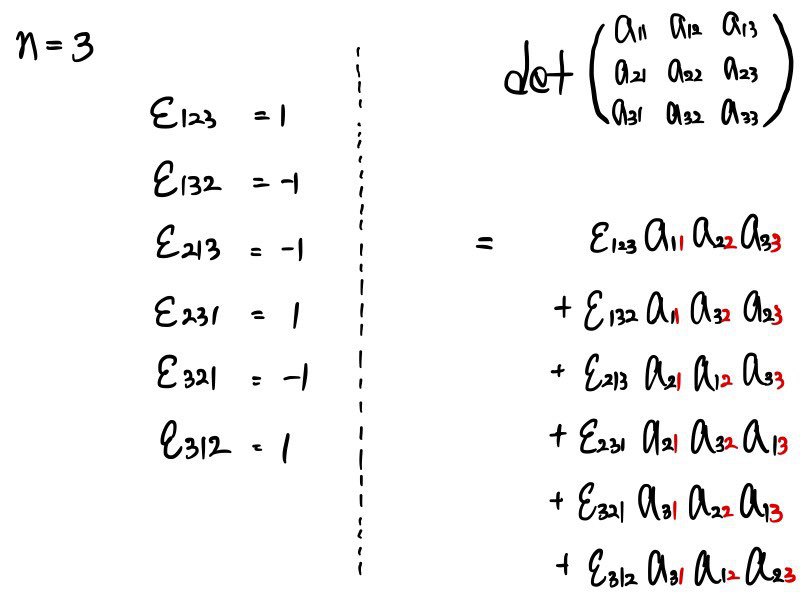 n = 3
ε123 = 1
ε132 = -1
ε213 = -1
ε231 = 1
ε321 = -1
ε312 = 1
det ( a11 a12 a13
a21 a22 a23
a31 a32 a33 )
= ε123 a11 a22 a33
+ ε132 a11 a32 a23
+ ε213 a21 a12 a33
+ ε231 a21 a32 a13
+ ε321 a31 a22 a13
+ ε312 a31 a12 a23